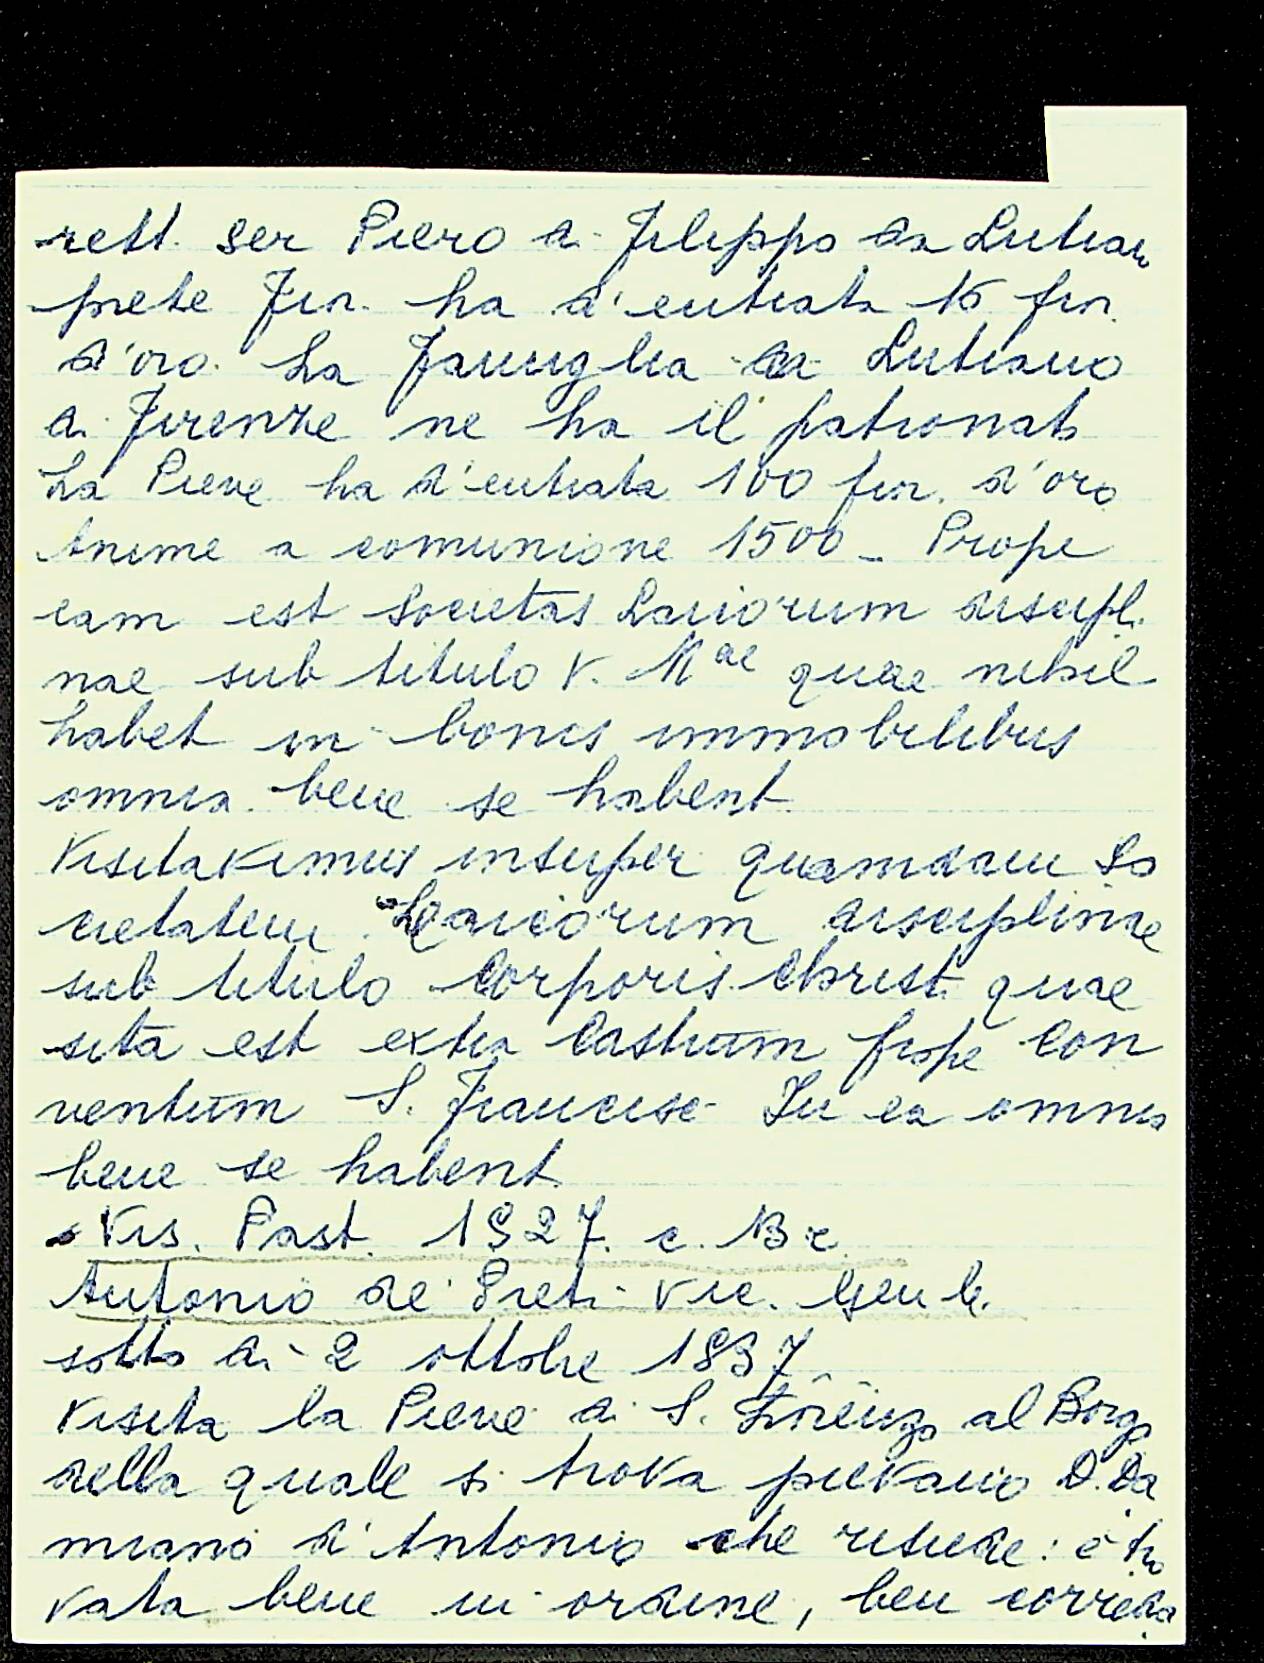 rett. ser Piero di Filippo da Lutian
prete fior. ha d'entrata 15 fior.
d'oro. La famiglia da Lutiano
di Firenze ne ha il patronato
La Pieve ha d'entrata 100 fior. d'oro
Anime a comunione 1500 - Prope
eam est societas Laicorum discipl.
nae sub titulo V. Mae quae nihil
habet in bonis immobilibus
omnia bene se habent
Visitavimus insuper quamdam so
cietatem Laicorum disciplinae
sub titulo Corporis Christi quae
sita est extra Castrum prope con
ventum S. Francisci In ea omnia
bene se habent.
Vis. Past. 1527. c. 13 c
Antonio de' Preti Vic. Gen le.
sotto di 2 ottobre 1537
Visita la Pieve di S. Lorenzo al Borgo
della quale si trova pievano D. Da
miano d'Antonio che risiede: è tro
vata bene in ordine, ben correda